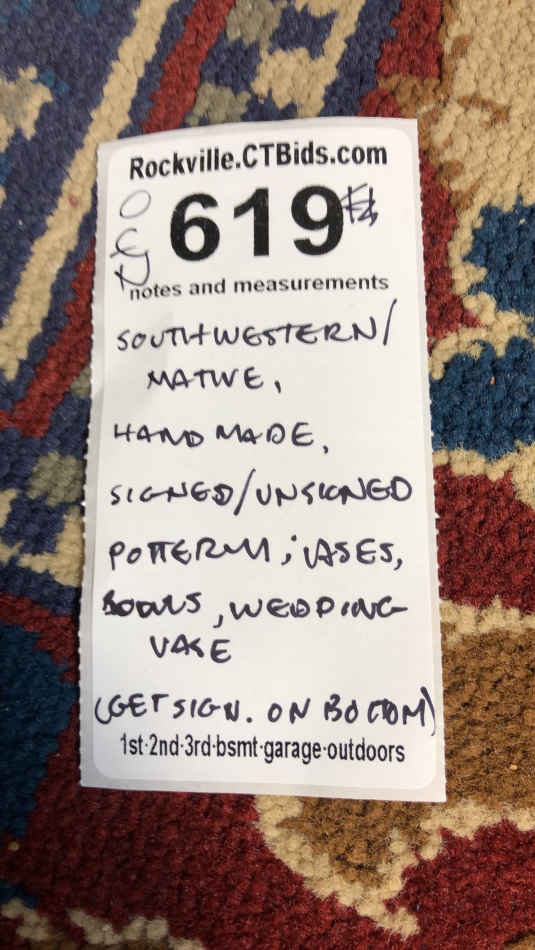 Rockville.CTBids.com
619
notes and measurements
SOUTHWESTERN/
NATIVE,
HANDMADE,
SIGNED/UNSIGNED
POTTERY; VASES,
BOWLS, WEDDING
VASE
(GET SIGN. ON BOTTOM)
1st·2nd·3rd·bsmt·garage·outdoors